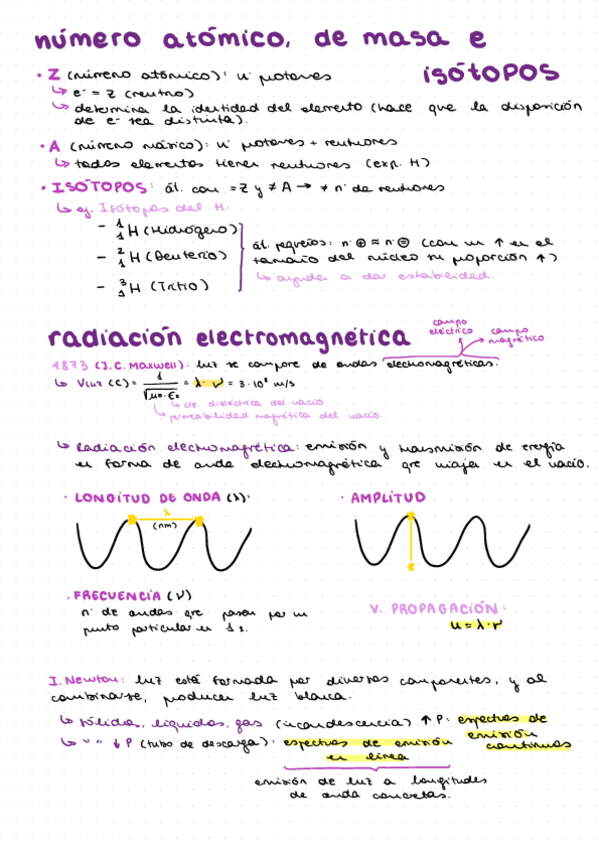 número atómico, de masa e
isótopos
· Z (número atómico): nº protones
↳ e⁻ = Z (neutro)
↳ determina la identidad del elemento (hace que la disposición
de e⁻ sea distinta).
· A (número másico): nº protones + neutrones
↳ todos elementos tienen neutrones (exp. H)
· ISÓTOPOS: át. con = Z y ≠ A → ≠ nº de neutrones
↳ ej. Isótopos del H:
- ¹₁H (Hidrógeno)
- ²₁H (Deuterio)
- ³₁H (Tritio)
át. pequeños: n·⊕ ≈ n·⊖ (con un ↑ en el
tamaño del núcleo su proporción ↑)
↳ ayudan a dar estabilidad.
radiación electromagnética
campo eléctrico
campo magnético
1873 (J.C. Maxwell): luz se compone de ondas electromagnéticas.
↳ Vluz (c) = 1/√μ₀·ε₀ = λ·ν = 3·10⁸ m/s
↳ cte. dieléctrica del vacío
↳ permeabilidad magnética del vacío.
↳ Radiación electromagnética: emisión y transmisión de energía
en forma de onda electromagnética que viaja en el vacío.
· LONGITUD DE ONDA (λ):
· AMPLITUD
λ
(nm)
· FRECUENCIA (ν)
nº de ondas que pasan por un
punto particular en 1 s.
V. PROPAGACIÓN:
u = λ·ν
I. Newton: luz está formada por diversos componentes, y al
combinarse, producen luz blanca.
↳ sólidos, líquidos, gas (incandescencia) ↑ P: espectros de
emisión
continuos
↳ " " ↓ P (tubo de descarga): espectros de emisión
en línea
emisión de luz a longitudes
de onda concretas.